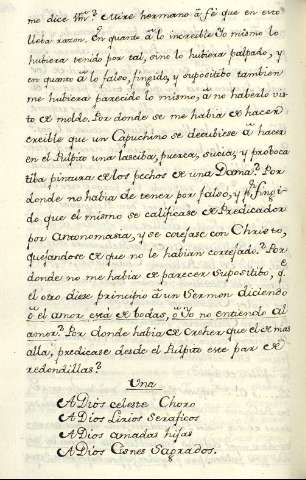 me dice Vm.? Mire hermano à fé que en esso
lleba razon. En quanto à lo increible yo mismo lo
hubiera tenido por tal, sino lo hubiera palpado, y
en quanto à lo falso, fingido, y supositibo tambien
me hubiera parecido lo mismo, à no haberlo vis-
to de molde. Por donde se me habia de hacer
creible que un Capuchino se atrebiese à hacer
en el Pulpito una lasciba, puerca, sucia, y proboca-
tiba pintura de los pechos de una Dama? Por
donde no habia de tener por falso, y fingi-
do que el mismo se calificase de Predicador
por Antonomasia, y se cotejase con Christo,
quejandose de que no le habian cortejado? Por
donde no me habia de parecer supositibo, qe.
el otro diese principio à un Sermon diciendo
ò el amor està de bodas, ò Yo no entiendo al
amor? Por donde habia de creher que el de mas
alla, predicase desde el Pulpito este par de
redondillas?
Una
A Dios celeste Choro
A Dios Lirios Seraficos
A Dios amadas hijas
A Dios Cisnes Sagrados.